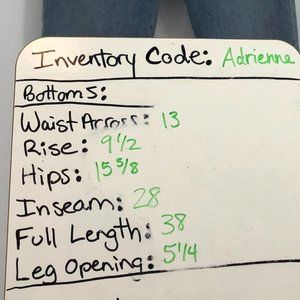 Inventory Code: Adrienne
Bottoms:
Waist Across: 13
Rise: 9 1/2
Hips: 15 5/8
Inseam: 28
Full Length: 38
Leg Opening: 5 1/4